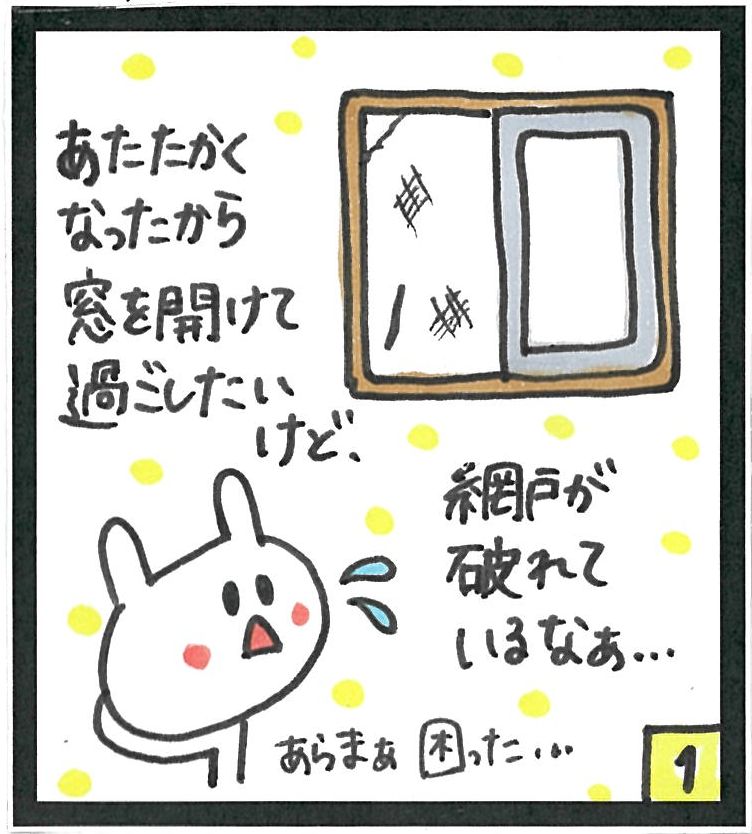 あたたかく
なったから
窓を開けて
過ごしたい
けど、
網戸が
破れて
いるなぁ...
あらまぁ 困った...
1